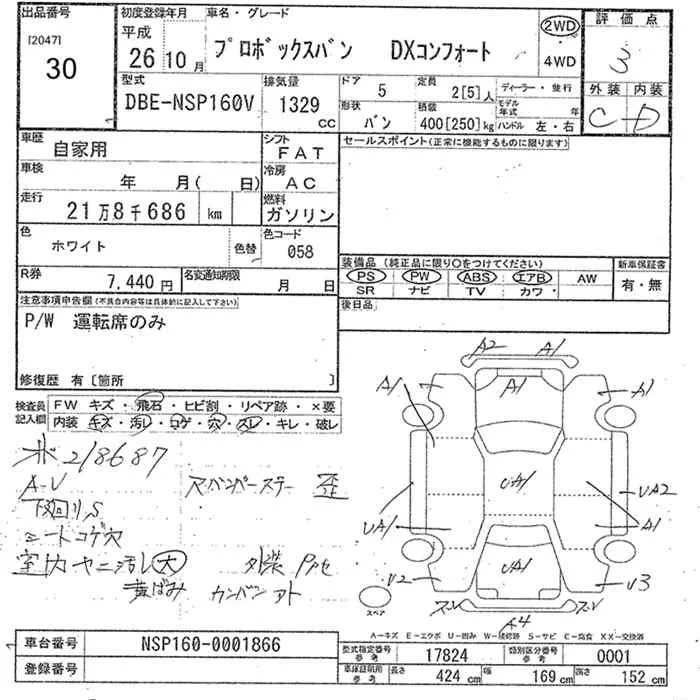 出品番号
[2047]
30
初度登録年月
平成
26 10 月
車名・グレード
プロボックスバン DXコンフォート
2WD
4WD
評価点
3
外装 内装
C D
型式
DBE-NSP160V
排気量
1329 cc
ドア
5
定員
2[5]人
形状
バン
積載
400[250]kg
ディーラー・並行
モデル年式 年
ハンドル 左・右
車歴
自家用
シフト
FAT
車検
年 月( 日)
冷房
AC
走行
21万8千686 km
燃料
ガソリン
色
ホワイト
色替
色コード
058
R券
7,440 円
名変通知期限
月 日
セールスポイント(正常に機能するものに限ります)
装備品 (純正品に限り○をつけてください)
PS PW ABS エアB AW
SR ナビ TV カワ
新車保証書
有・無
後日品
注意事項申告欄(不具合内容等は具体的に記入して下さい)
P/W 運転席のみ
修復歴 有〔箇所 〕
検査員記入欄
FW キズ・飛石・ヒビ割・リペア跡・×要
内装 キズ・汚レ・コゲ・穴・スレ・キレ・破レ
218687
A-V
下回りS
シートコゲ穴
室内ヤニ汚レ大
黄ばみ カンバンアト
歪
A2 A1
A1 A1 A1
UA1
UA1 A1 UA2
U2 UA1 U3
A4
スペア
A-キズ E-エクボ U-凹み W-補修跡 S-サビ C-腐食 XX-交換済
車台番号
NSP160-0001866
登録番号
型式指定番号 参考
17824
類別区分番号 参考
0001
車庫証明用 参考
長さ 424 cm 幅 169 cm 高さ 152 cm